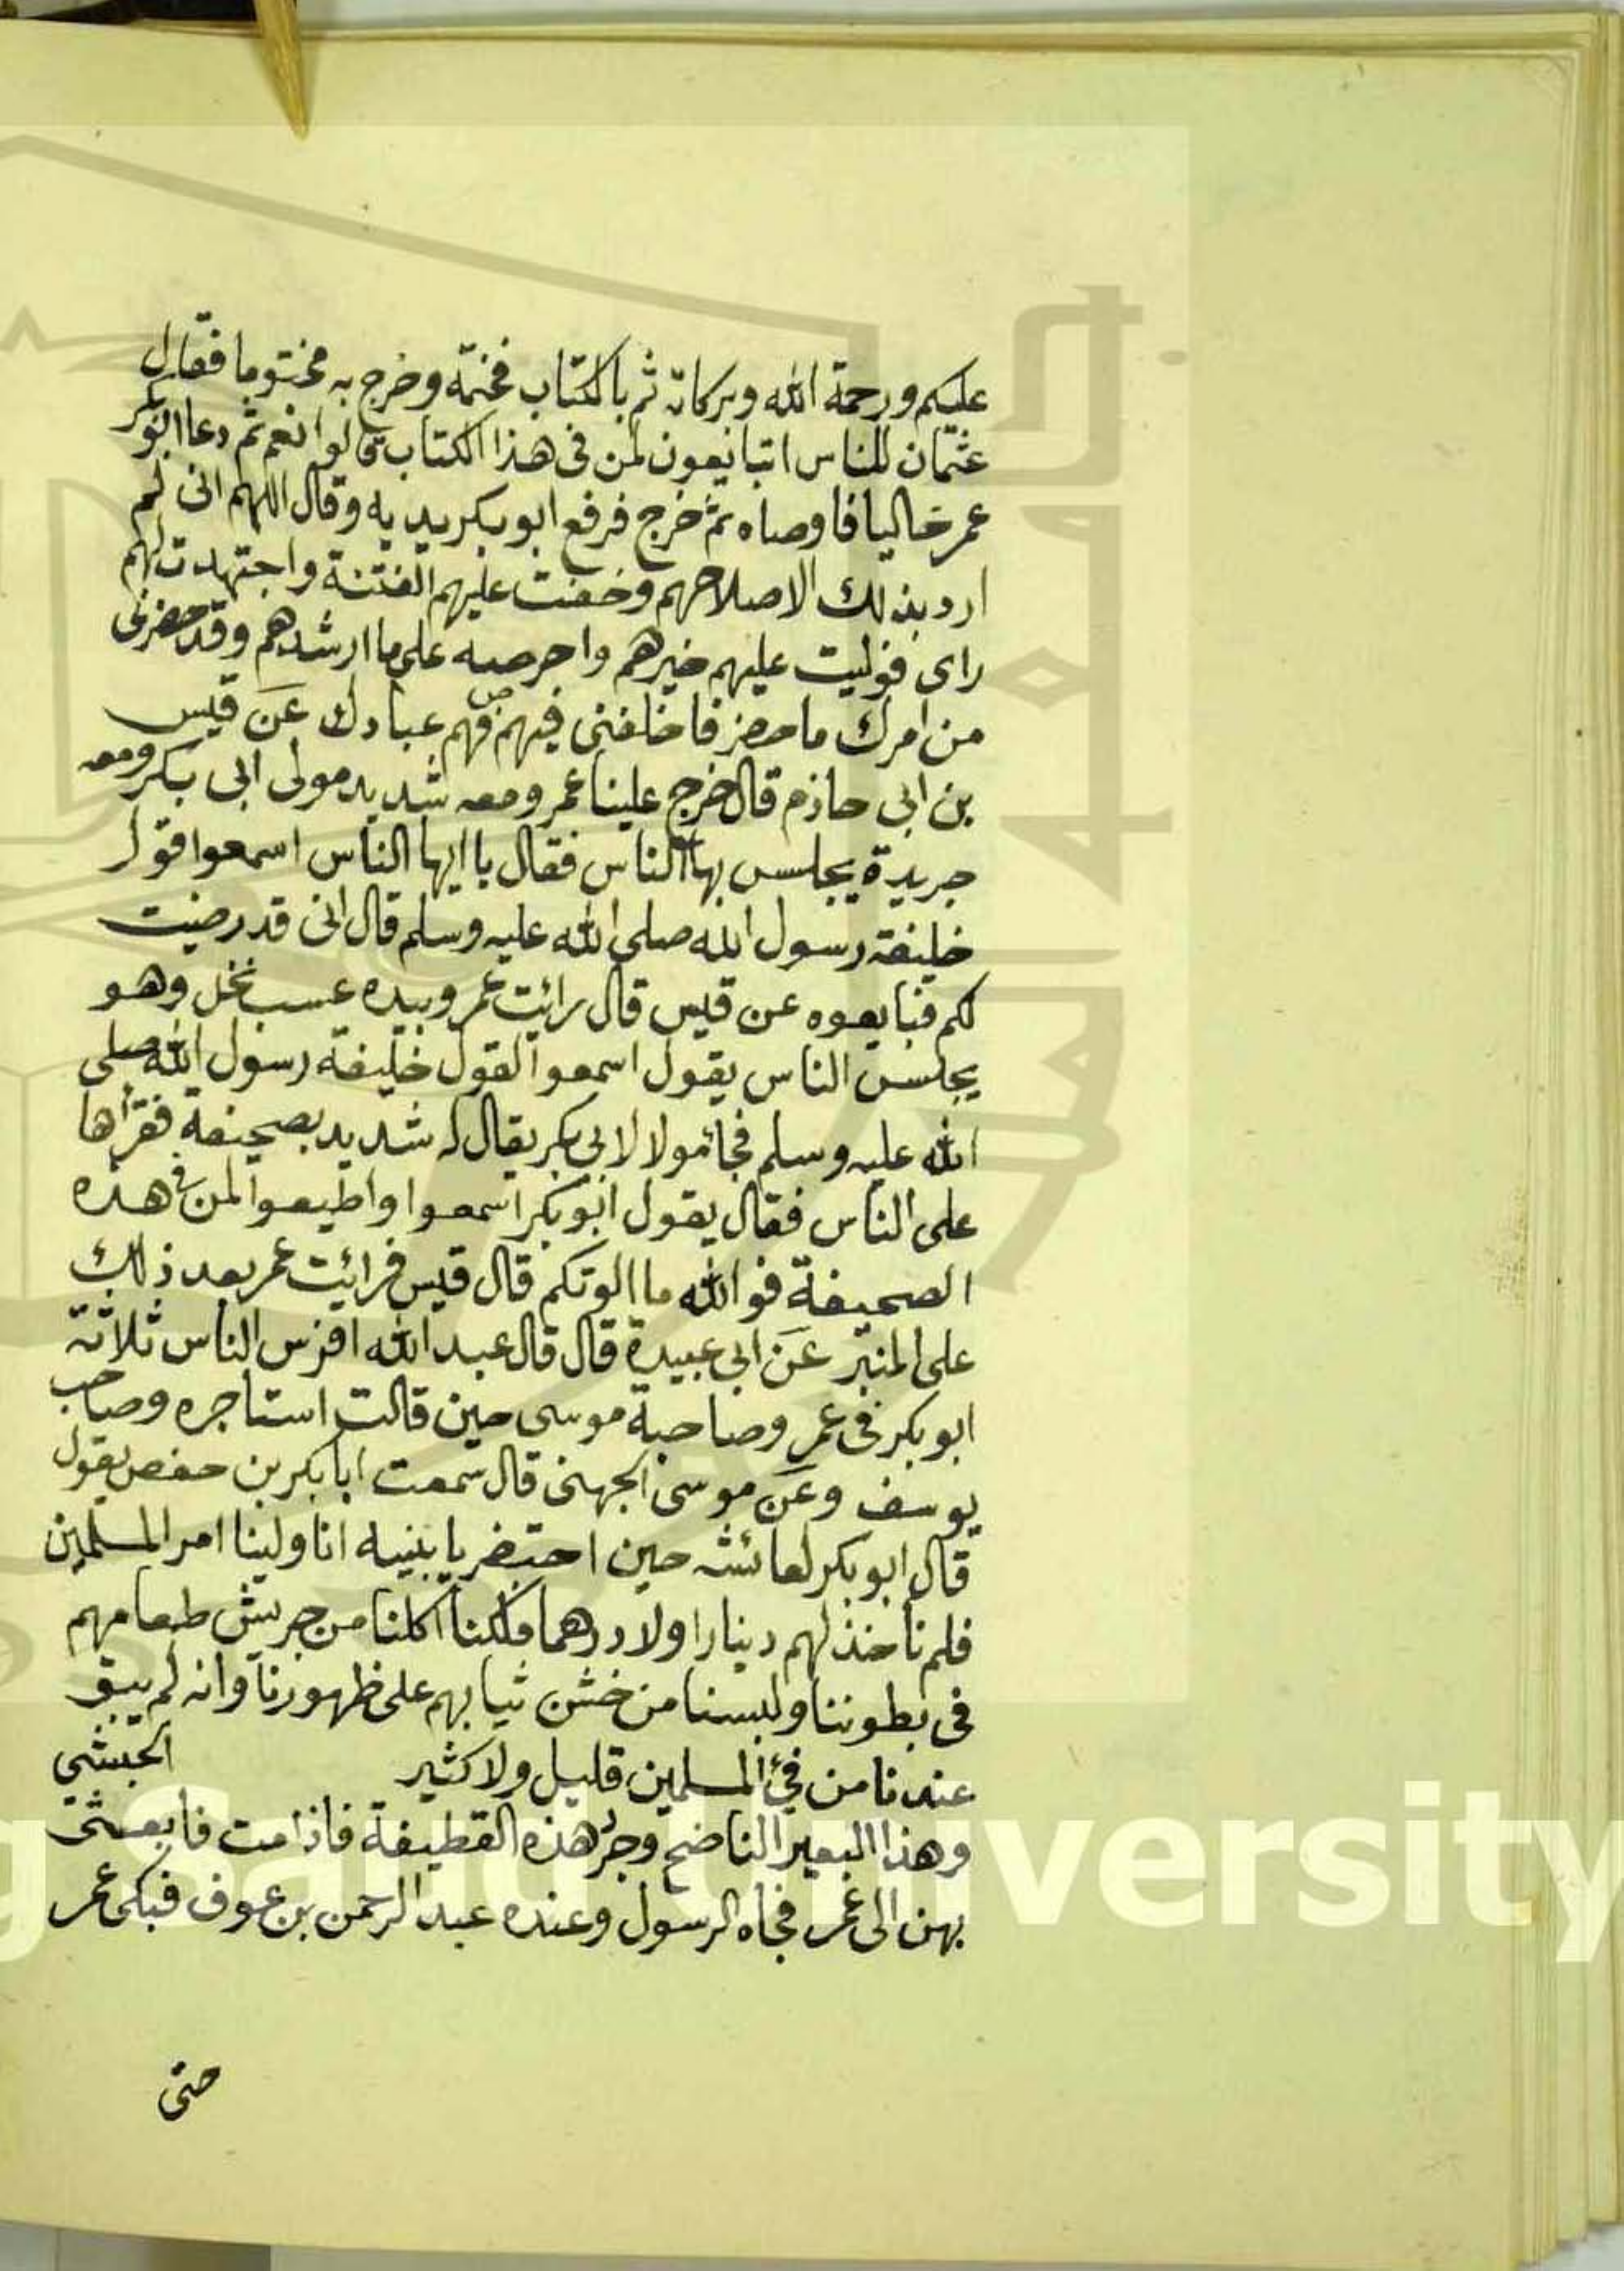 عليكم ورحمة الله وبركاته ثم بالكتاب فختمه وخرج به مختوما فقال
عثمان للناس اتبايعون لمن فى هذا الكتاب قالوا نعم ثم دعا ابوبكر
عمر خاليا فاوصاه ثم خرج فرفع ابو بكر يديه وقال اللهم انى لم
ارد بذلك الا صلاحهم وخفت عليهم الفتنة واجتهدت لهم
راى فوليت عليهم خيرهم واحرصه على ما ارشدهم وقد حضرنى
من امرك ما حضر فاخلفنى فيهم فهم عبادك عن قيس
بن ابى حازم قال خرج علينا عمر ومعه شديد مولى ابى بكر ومعه
جريدة يجلس بها الناس فقال يا ايها الناس اسمعوا قول
خليفة رسول الله صلى الله عليه وسلم قال انى قد رضيت
لكم فبايعوه عن قيس قال رائيت عمر وبيده عسب نخل وهو
يجلس الناس يقول اسمعوا لقول خليفة رسول الله صلى
الله عليه وسلم فجا مولا لابى بكر يقال له شديد بصحيفة فقراها
على الناس فقال يقول ابو بكر اسمعوا واطيعوا لمن فى هذه
الصحيفة فوالله ما الوتكم قال قيس فرائيت عمر بعد ذلك
على المنبر عن ابى عبيدة قال قال عبد الله افرس الناس ثلاثة
ابو بكر فى عمر وصاحبة موسى حين قالت استاجره وصاحب
يوسف وعن موسى الجهنى قال سمعت ابا بكر بن حفص يقول
قال ابو بكر لعائشه حين احتضر يا بنيه انا ولينا امر المسلمين
فلم نأخذ لهم دينارا ولا درهما ولكنا اكلنا من جريش طعامهم
فى بطوننا ولبسنا من خشن ثيابهم على ظهورنا وانه لم يبق
عندنا من فئ المسلمين قليل ولا كثير الحبشي
وهذا البعير الناضح وجرد هذه القطيفة فاذا مت فابعثى
بهن الى عمر فجاه الرسول وعنده عبد الرحمن بن عوف فبكى عمر
حتى